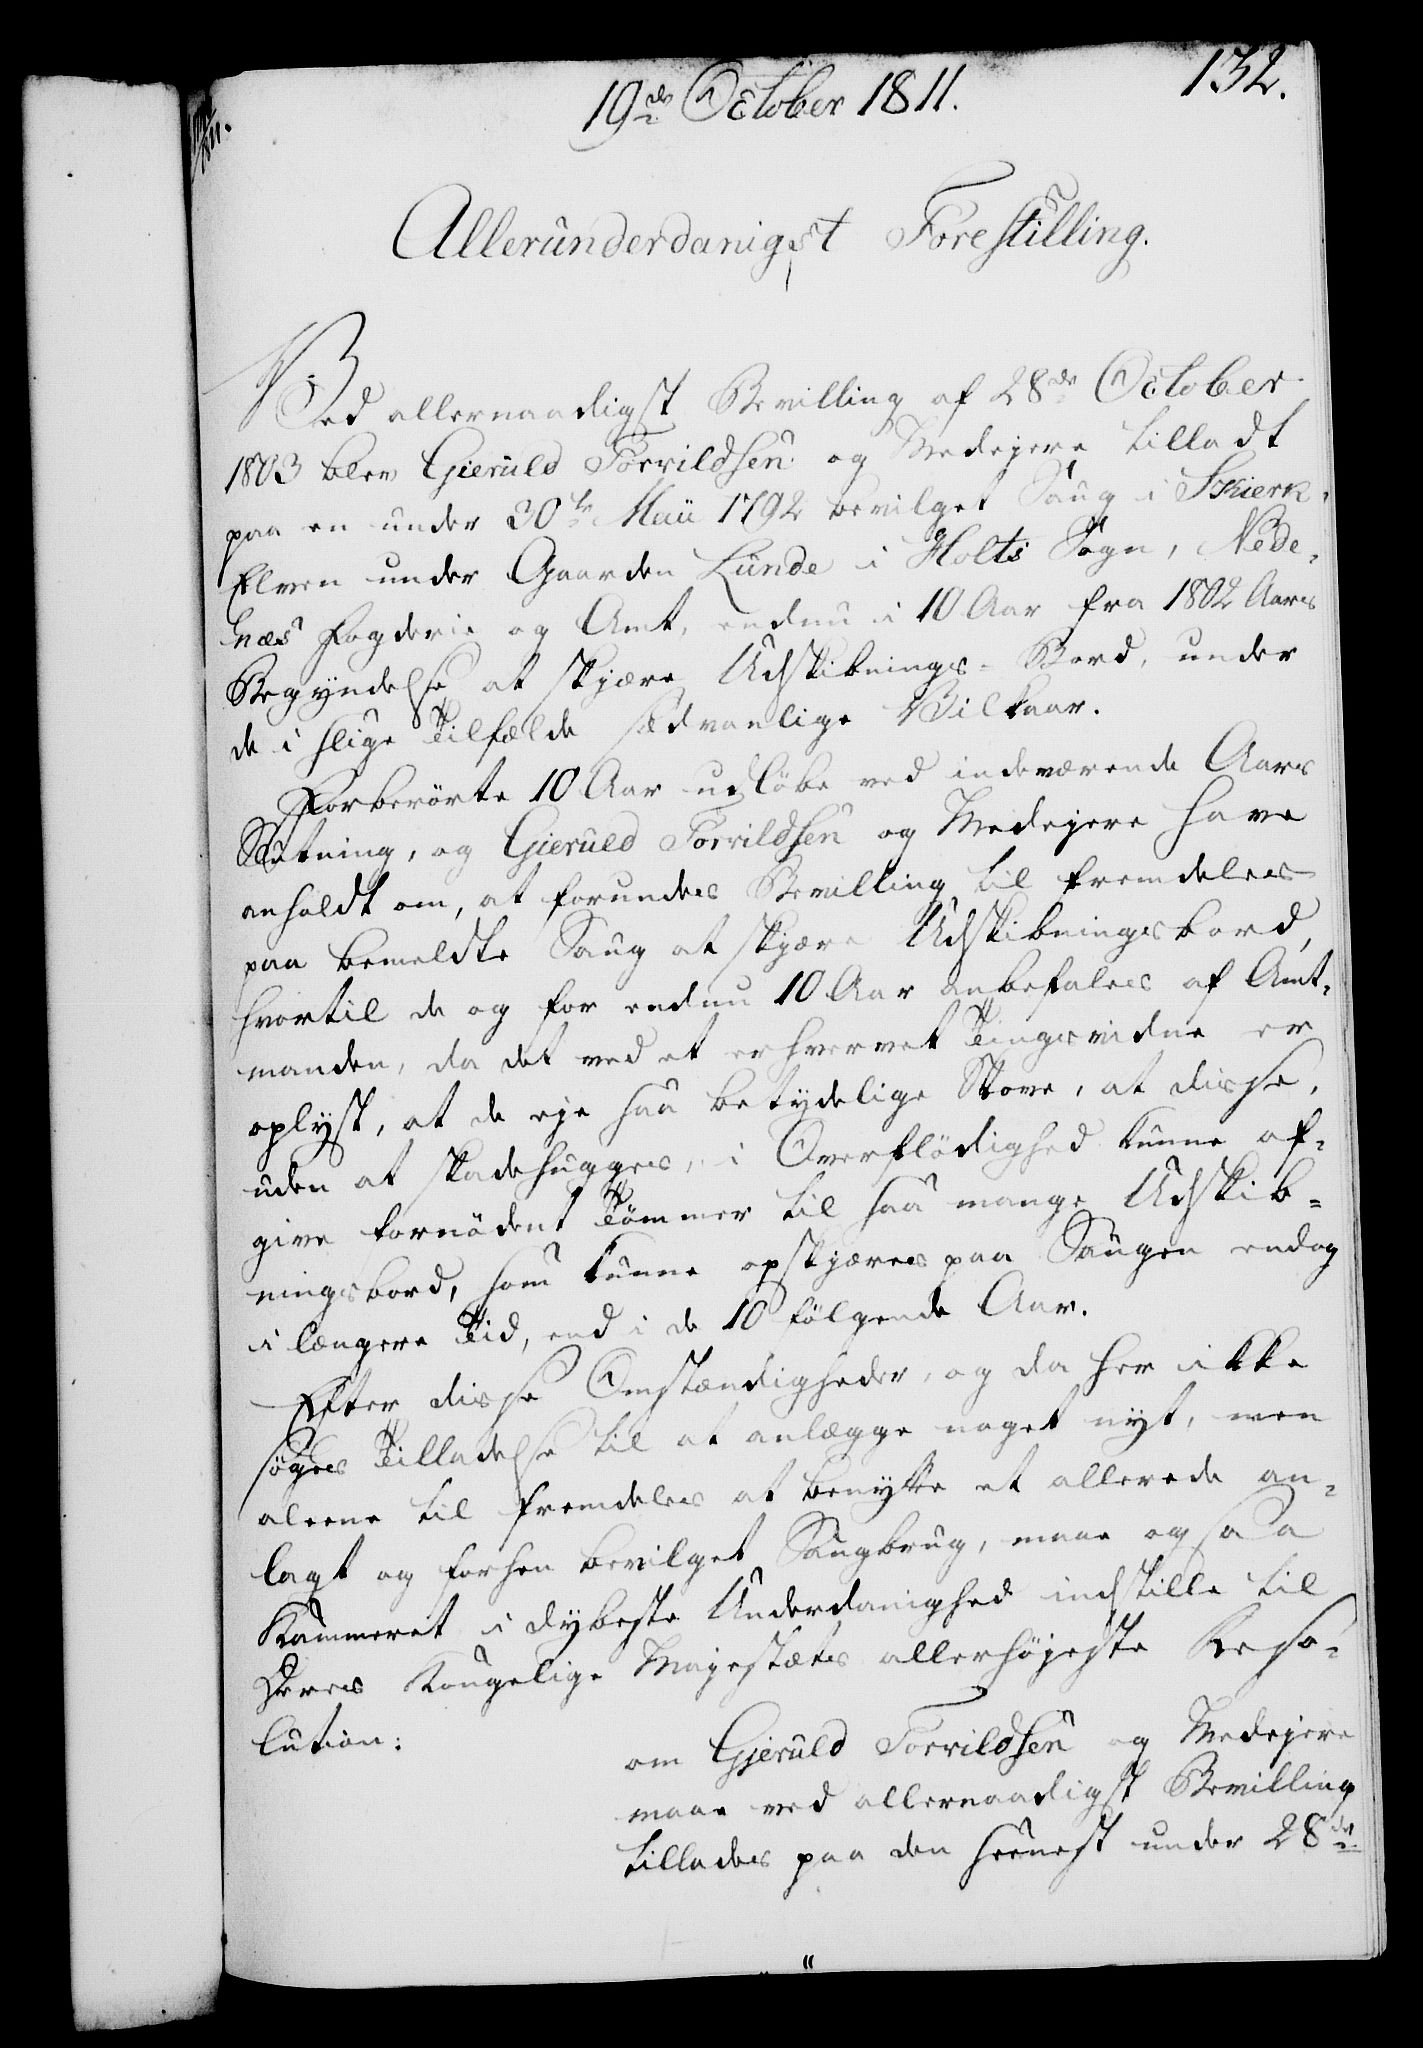 19de October 1811.
132.
Allerunderdanigst Forestilling.
Ved allernaadigst Bevilling af 28de October
1803 blev Gieruld Torvildsen og Medejere tilladt
paa en under 30te Maii 1792 bevilget Saug i Skierk-
Elven under Gaarden Lunde i Holts Sogn, Nede-
næs Fogderie og Amt, endnu i 10 Aar fra 1802 Aars
Begyndelse at skjære Udskibnings-Bord, under
de i slige Tilfælde sædvanlige Vilkaar.
Forberørte 10 Aar udløbe ved indeværende Aars
Slutning, og Gieruld Torvildsen og Medejere have
anholdt om, at forundes Bevilling til fremdeles
paa bemeldte Saug at skjære Udskibningsbord,
hvortil de og for endnu 10 Aar anbefales af Amt-
manden, da det ved et erhvervet Tingsvidne er
oplyst, at de eje saa betydelige Skove, at disse,
uden at skadehugges, i Overflødighed kunne af-
give fornødent Tømmer til saa mange Udskib-
ningsbord, som kunne opskjæres paa Saugen endog
i længere Tid, end i de 10 følgende Aar.
Efter disse Omstændigheder, og da her ikke
søges Tilladelse til at anlægge noget nyt, men
aleene til fremdeles at benytte et allerede an-
lagt og forhen bevilget Saugbrug, maae ogsaa
Kammeret i dybeste Underdanighed indstille til
Deres Kongelige Majestæts allerhøjeste Reso-
lution:
om Gjeruld Torvildsen og Medejere
maae ved allernaadigst Bevilling
tillades paa den seenest under 28de